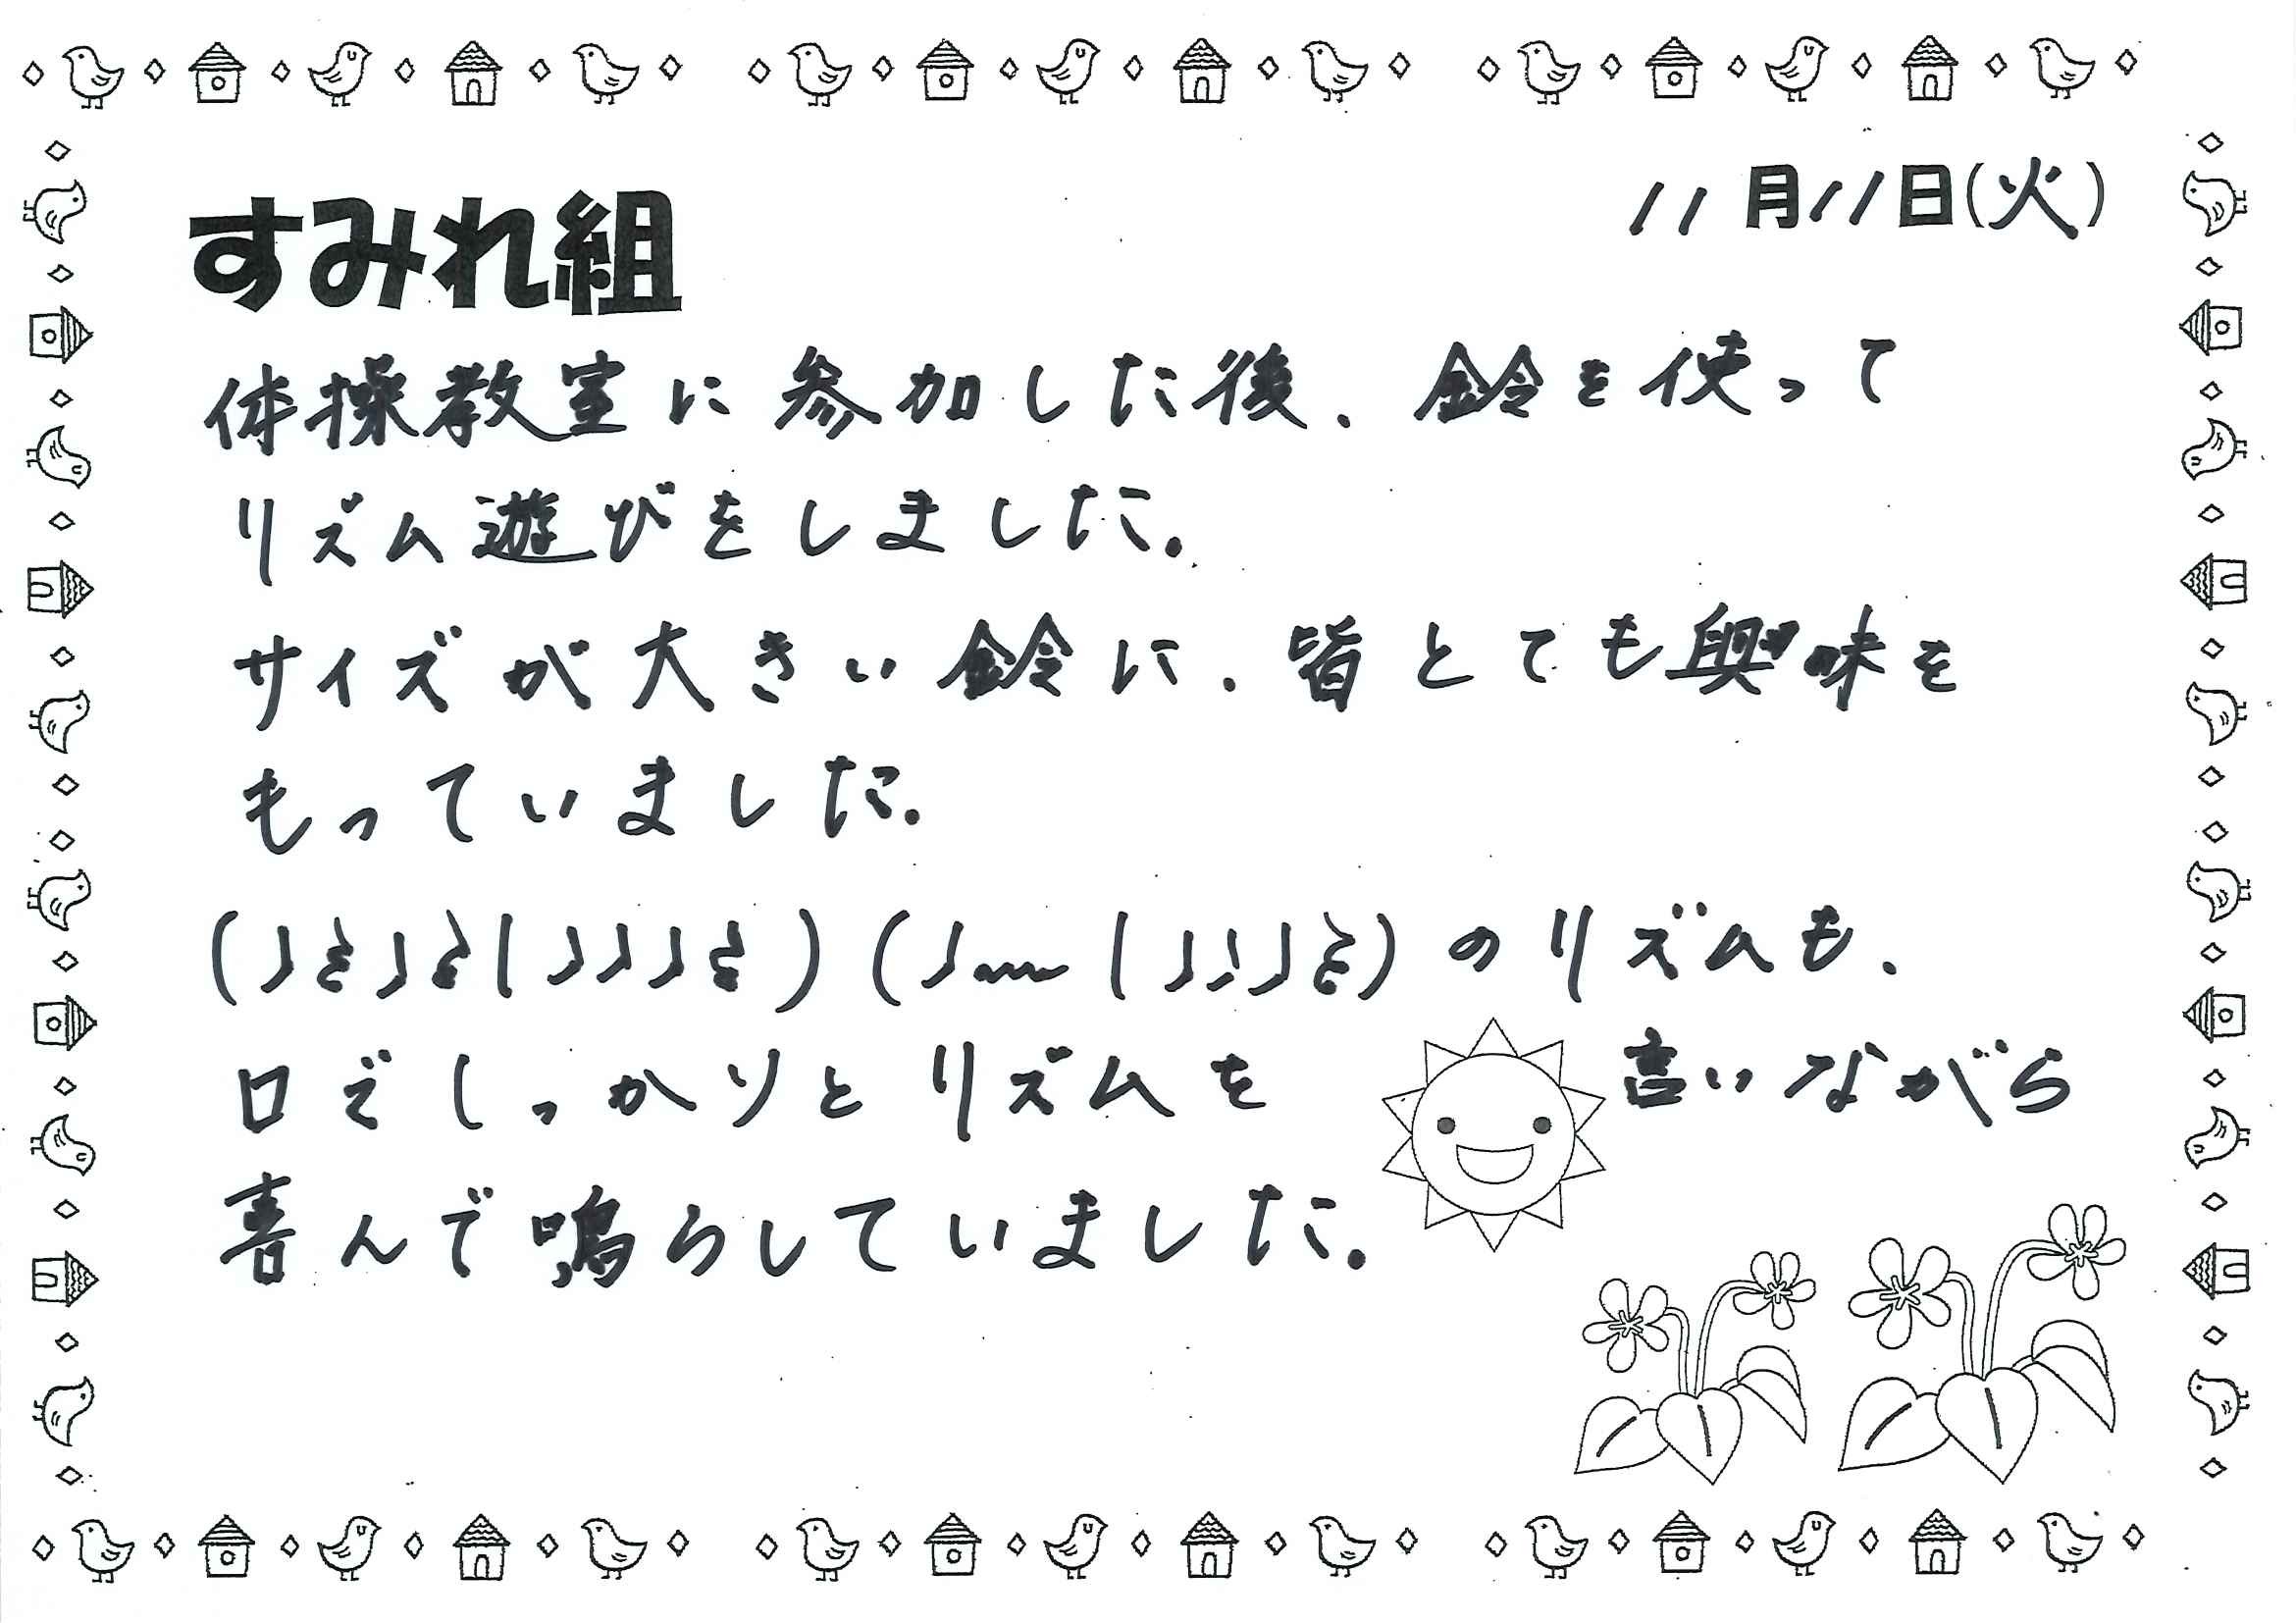 11月11日(火)
すみれ組
体操教室に参加した後、鈴を使って
リズム遊びをしました。
サイズが大きい鈴に、皆とても興味を
もっていました。
(♩𝄽♩𝄽|♩♩♩𝄽)(♩〰|♩♩♩𝄽)のリズムも、
口でしっかりとリズムを言いながら
喜んで鳴らしていました。